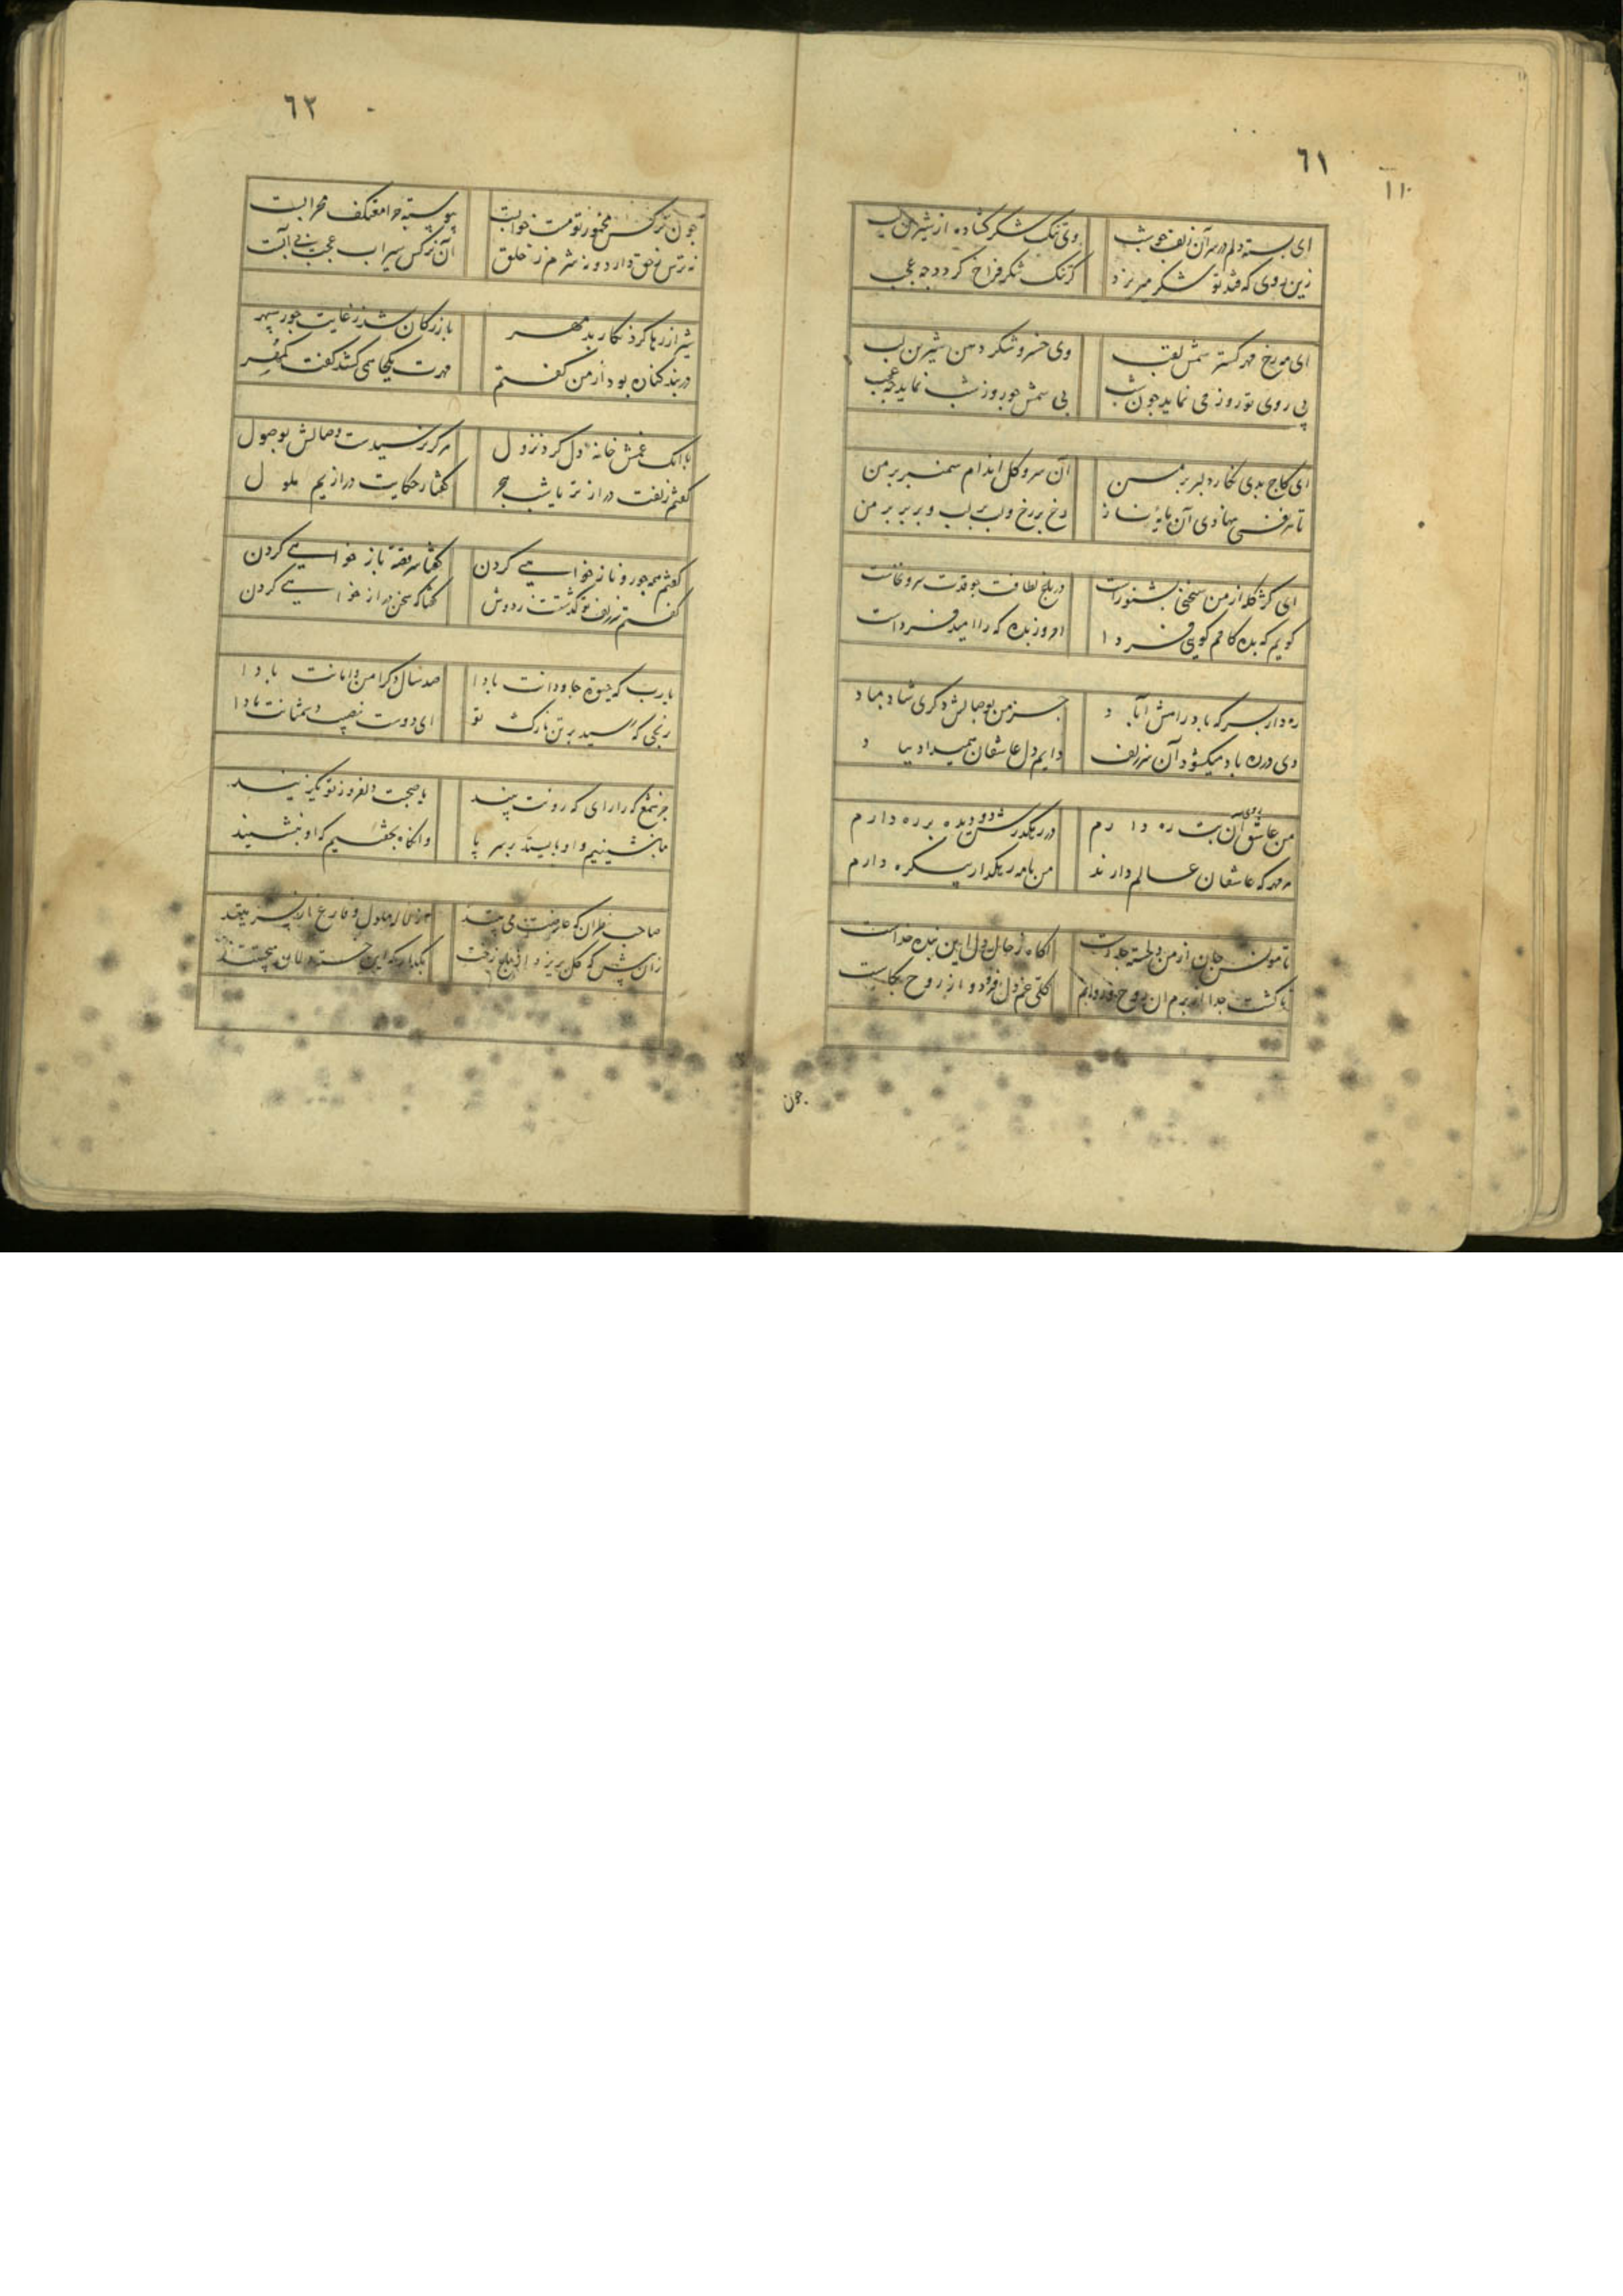 ٦١
١١٠
ای بسته دلم در سر آن زلف چو شب وی تنک شکر کشاده از شیرین لب
زین روی که قند تو شکر میریزد کر تنک شکر فراخ کردد چه عجب
ای مه رخ مهر کستر شمس لقب وی خسرو شکر دهن شیرین لب
بی روی تو روز می نماید چون شب بی شمس چو روز شب نماید چه عجب
ای کاج بدی نکار دلبر بر من آن سرو کل اندام سمنبر بر من
تا هر نفسی نهادی آن مایه ناز رخ بر رخ و لب بر لب و بر بر بر من
ای کز کله از من سخنی نشنودت در باغ لطافت چو قدت سرو نخاست
کویم که بده کامم کویی فردا امروز بده که را امید فرداست
ره دار بسر که باد رامش آباد جز من بوصالش دکری شاد مباد
دی در ره باد میکشود آن سر زلف دایم دل عاشقان همیداد بباد
من عاشق روی آن بت ره دارم در رهکذرش دو دیده بر ره دارم
هر مهر که عاشقان عالم دارند من با مه رهکدار یکره دارم
تا مونس جان از من دلخسته جداست آکاه ز حال دل این بنده خداست
تا کشت جدا از برم آن روح روانم کلی غم دل فزود و از روح بکاست
چون
٦٢
چون نرکس مخمور تو مست خوابست پیوسته چرا معتکف محرابست
نه ترس ز حق دارد و نه شرم ز خلق آن نرکس سیراب عجب بی آبست
شیراز رها کرد نکار بد مهر بازرکان شد ز غایت جور سپهر
در بند کنان بود از من کفتم مهرت بکجا می کشد کفت کمهر
با آنک غمش خانه دل کرد نزول هرکز نرسیدت وصالش بوصول
کفتم زلفت درازتر یا شب هجر کفتا ز حکایت درازیم ملول
کفتم همه جور و ناز خواهی کردن کفتا سر فتنه باز خواهی کردن
کفتم سر زلف تو کذشتت ز دوش کفتا که سخن دراز خواهی کردن
یا رب که حیوة جاودانت بادا صد سال دکر امن و امانت بادا
رنجی که رسید بر تن نازک تو ای دوست نصیب دشمنانت بادا
جز شمع که را رای که رویت بیند با صحبت دلفروز تو بکزیند
ما بنشینیم و او بایستد بر سر پا وانکاه بکشیم که او ننشیند
صاحب نظران که عارضت می بینند
زان پیش که کل بریزد از باغ رخت بکذار که این خسته دلان میچینند